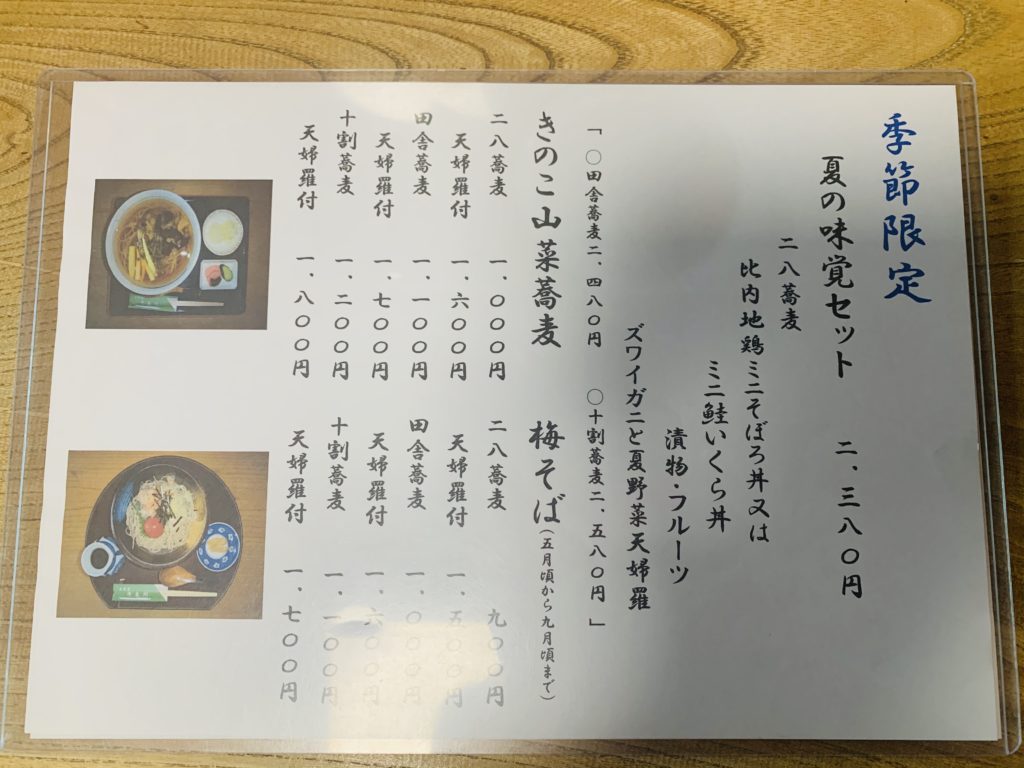 季節限定
夏の味覚セット 二、三八〇円
二八蕎麦
比内地鶏ミニそぼろ丼又は
ミニ鮭いくら丼
漬物・フルーツ
ズワイガニと夏野菜天婦羅
「〇田舎蕎麦二、四八〇円 〇十割蕎麦二、五八〇円」
きのこ山菜蕎麦
二八蕎麦 一、〇〇〇円
天婦羅付 一、六〇〇円
田舎蕎麦 一、一〇〇円
天婦羅付 一、七〇〇円
十割蕎麦 一、二〇〇円
天婦羅付 一、八〇〇円
梅そば(五月頃から九月頃まで)
二八蕎麦 九〇〇円
天婦羅付 一、五〇〇円
田舎蕎麦 一、〇〇〇円
天婦羅付 一、六〇〇円
十割蕎麦 一、一〇〇円
天婦羅付 一、七〇〇円